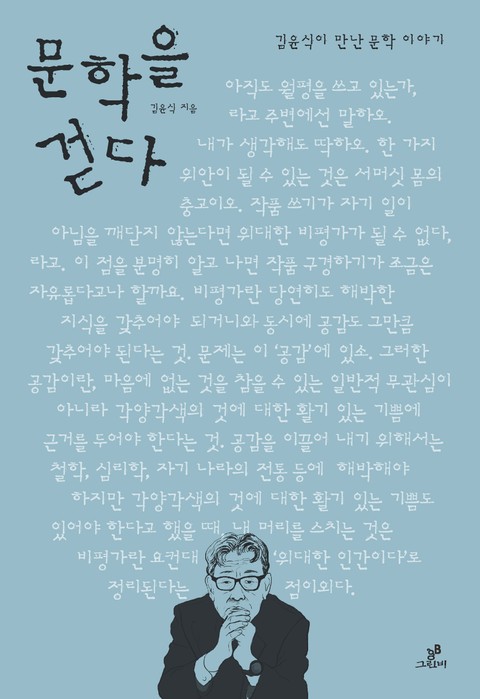 김윤식이 만난 문학 이야기
문학을
걷다
김윤식 지음
아직도 월평을 쓰고 있는가,
라고 주변에선 말하오.
내가 생각해도 딱하오. 한 가지
위안이 될 수 있는 것은 서머싯 몸의
충고이오. 작품 쓰기가 자기 일이
아님을 깨닫지 않는다면 위대한 비평가가 될 수 없다,
라고. 이 점을 분명히 알고 나면 작품 구경하기가 조금은
자유롭다고나 할까요. 비평가란 당연히도 해박한
지식을 갖추어야 되거니와 동시에 공감도 그만큼
갖추어야 된다는 것. 문제는 이 ‘공감’에 있소. 그러한
공감이란, 마음에 없는 것을 참을 수 있는 일반적 무관심이
아니라 각양각색의 것에 대한 활기 있는 기쁨에
근거를 두어야 한다는 것. 공감을 이끌어 내기 위해서는
철학, 심리학, 자기 나라의 전통 등에 해박해야
하지만 각양각색의 것에 대한 활기 있는 기쁨도
있어야 한다고 했을 때, 내 머리를 스치는 것은
비평가란 요컨대 ‘위대한 인간이다’로
정리된다는 점이외다.
gB
그린비